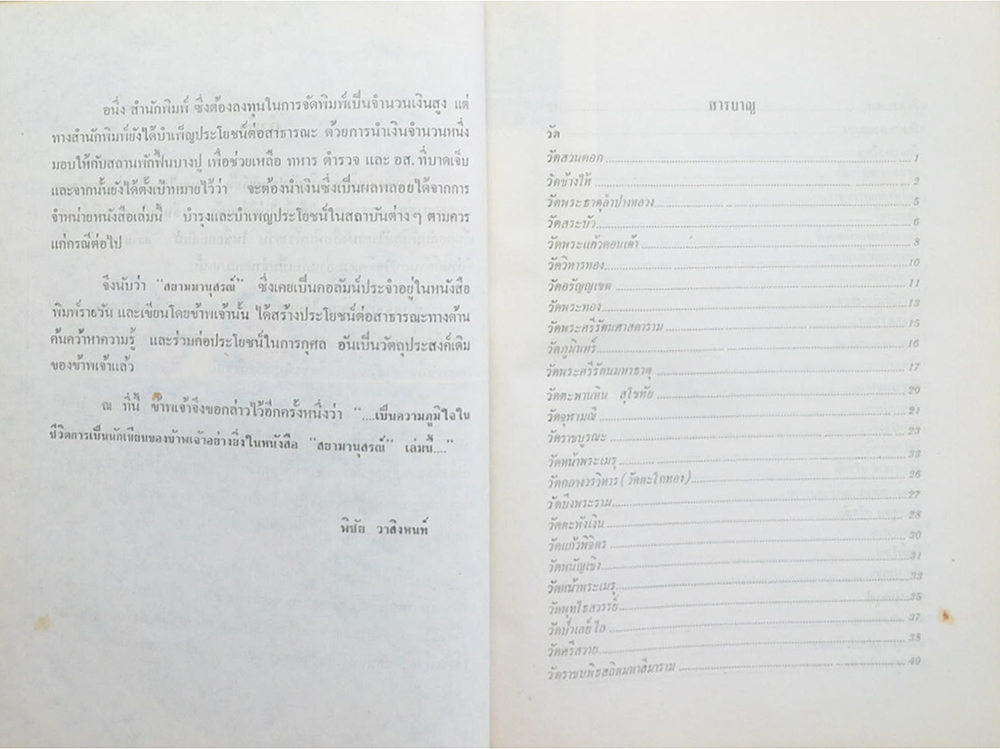 อนึ่ง สำนักพิมพ์ ซึ่งต้องลงทุนในการจัดพิมพ์เป็นจำนวนเงินสูง แต่
ทางสำนักพิมพ์ยังได้บำเพ็ญประโยชน์ต่อสาธารณะ ด้วยการนำเงินจำนวนหนึ่ง
มอบให้กับสถานพักฟื้นบางปู เพื่อช่วยเหลือ ทหาร ตำรวจ และ อส. ที่บาดเจ็บ
และจากนั้นยังได้ตั้งเป้าหมายไว้ว่า จะต้องนำเงินซึ่งเป็นผลพลอยได้จากการ
จำหน่ายหนังสือเล่มนี้ บำรุงและบำเพ็ญประโยชน์ในสถาบันต่าง ๆ ตามควร
แก่กรณีต่อไป
จึงนับว่า "สยามานุสรณ์" ซึ่งเคยเป็นคอลัมน์ประจำอยู่ในหนังสือ
พิมพ์รายวัน และเขียนโดยข้าพเจ้านั้น ได้สร้างประโยชน์ต่อสาธารณะทางด้าน
ค้นคว้าหาความรู้ และร่วมก่อประโยชน์ในการกุศล อันเป็นวัตถุประสงค์เดิม
ของข้าพเจ้าแล้ว
ณ ที่นี้ ข้าพเจ้าจึงขอกล่าวไว้อีกครั้งหนึ่งว่า "....เป็นความภูมิใจใน
ชีวิตการเป็นนักเขียนของข้าพเจ้าอย่างยิ่งในหนังสือ "สยามานุสรณ์" เล่มนี้...."
พิชัย วาสิงหนท์
สารบาญ
วัด
วัดสวนดอก 1
วัดช้างให้ 2
วัดพระธาตุลำปางหลวง 5
วัดสระบัว 6
วัดพระแก้วดอนเต้า 8
วัดวิหารทอง 10
วัดอรัญญเขต 11
วัดพระทอง 13
วัดพระศรีรัตนศาสดาราม 15
วัดภูมินทร์ 16
วัดพระศรีรัตนมหาธาตุ 17
วัดตะพานหิน สุโขทัย 20
วัดจุฬามณี 21
วัดราชบูรณะ 23
วัดหน้าพระเมรุ 33
วัดกลางวรวิหาร (วัดตะโกทอง) 26
วัดบึงพระราม 27
วัดตะพังเงิน 28
วัดแก้วพิจิตร 30
วัดพนัญเชิง 31
วัดหน้าพระเมรุ 33
วัดพุทไธสวรรย์ 35
วัดป่าเลย์ไล 37
วัดศรีสวาย 38
วัดราชบพิธสถิตมหาสีมาราม 40